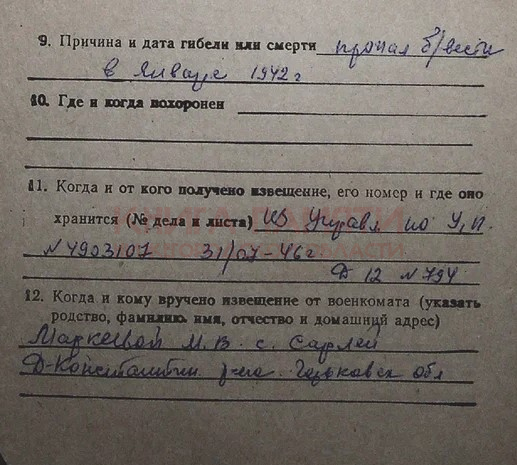 9. Причина и дата гибели или смерти пропал б/вести
в Январе 1942 г
10. Где и когда похоронен
11. Когда и от кого получено извещение, его номер и где оно
хранится (№ дела и листа) Из Управл по У,П.
N 4903107 31/07-46 г
Д 12 N 794
12. Когда и кому вручено извещение от военкомата (указать
родство, фамилию имя, отчество и домашний адрес)
Маркевой М.В. с. Сарлей
Д-Константин р-на Горьковск обл